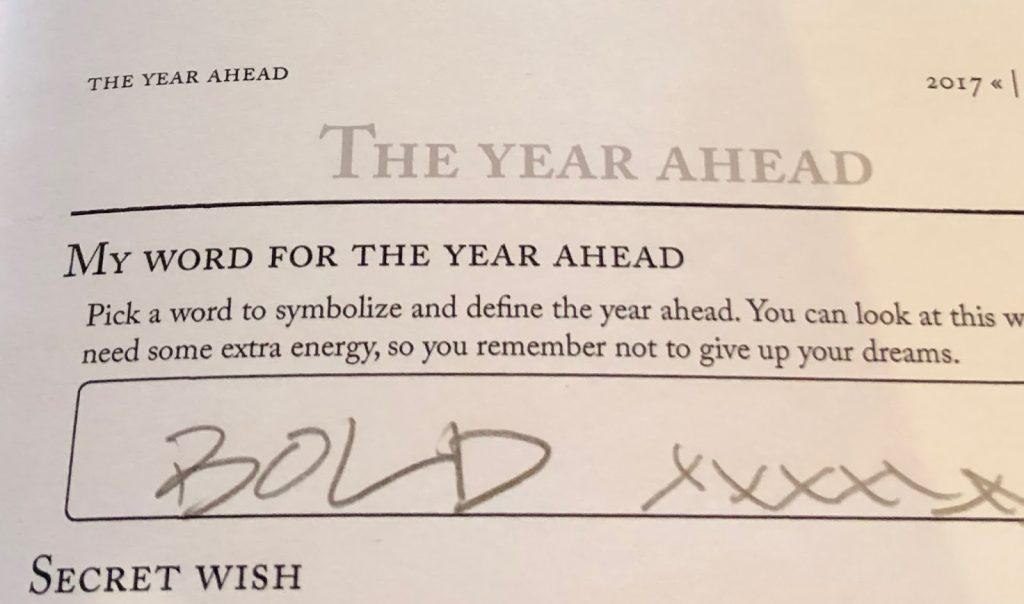 THE YEAR AHEAD 2017 « |
THE YEAR AHEAD
MY WORD FOR THE YEAR AHEAD
Pick a word to symbolize and define the year ahead. You can look at this w
need some extra energy, so you remember not to give up your dreams.
BOLD xxxxxx
SECRET WISH